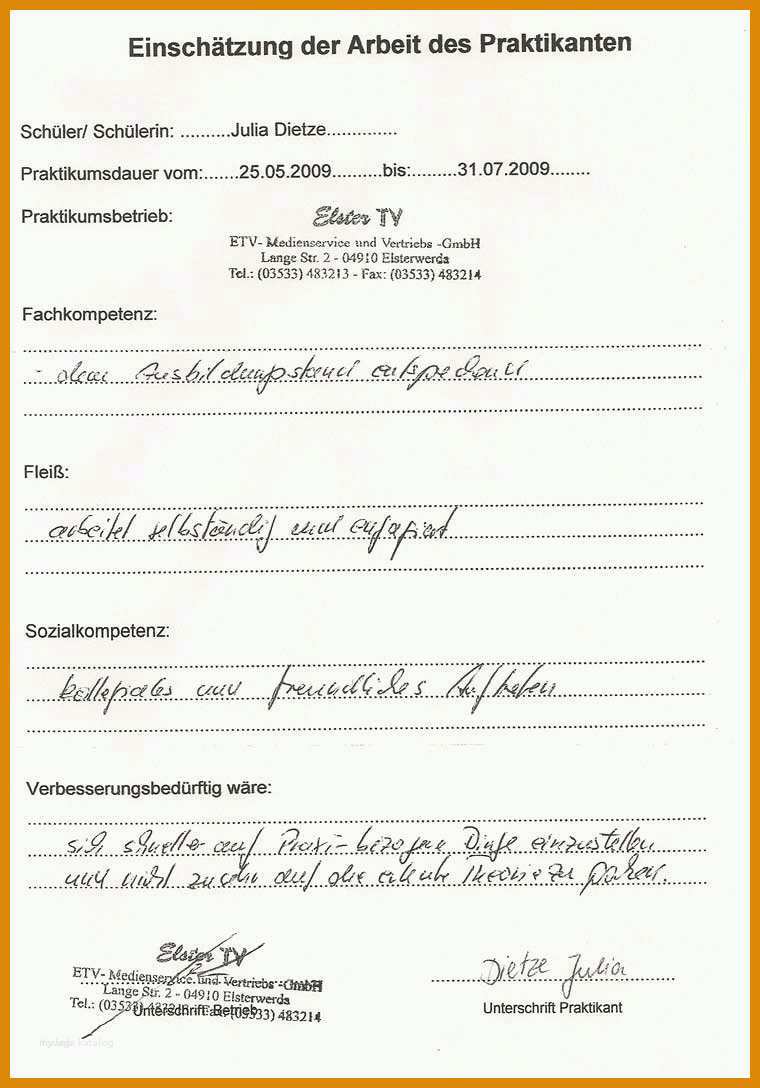 Einschätzung der Arbeit des Praktikanten
Schüler/ Schülerin: ..........Julia Dietze..............
Praktikumsdauer vom:.......25.05.2009..........bis:.........31.07.2009........
Praktikumsbetrieb:
Elster TV
ETV- Medienservice und Vertriebs -GmbH
Lange Str. 2 - 04910 Elsterwerda
Tel.: (03533) 483213 - Fax: (03533) 483214
Fachkompetenz:
- dem Ausbildungsstand entsprechend
Fleiß:
arbeitet selbständig und engagiert
Sozialkompetenz:
kollegiales und freundliches Auftreten
Verbesserungsbedürftig wäre:
sich schneller auf Praxi-bezogene Dinge einzustellen
und nicht zu sehr auf die erlernte Theorie zu pochen.
Elster TV
ETV- Medienservice und Vertriebs -GmbH
Lange Str. 2 - 04910 Elsterwerda
Tel.: (03533) 483213 - Fax: (03533) 483214
Unterschrift Betrieb
Dietze Julia
Unterschrift Praktikant